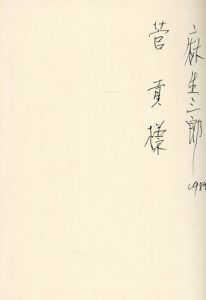 麻生三郎
菅貢様